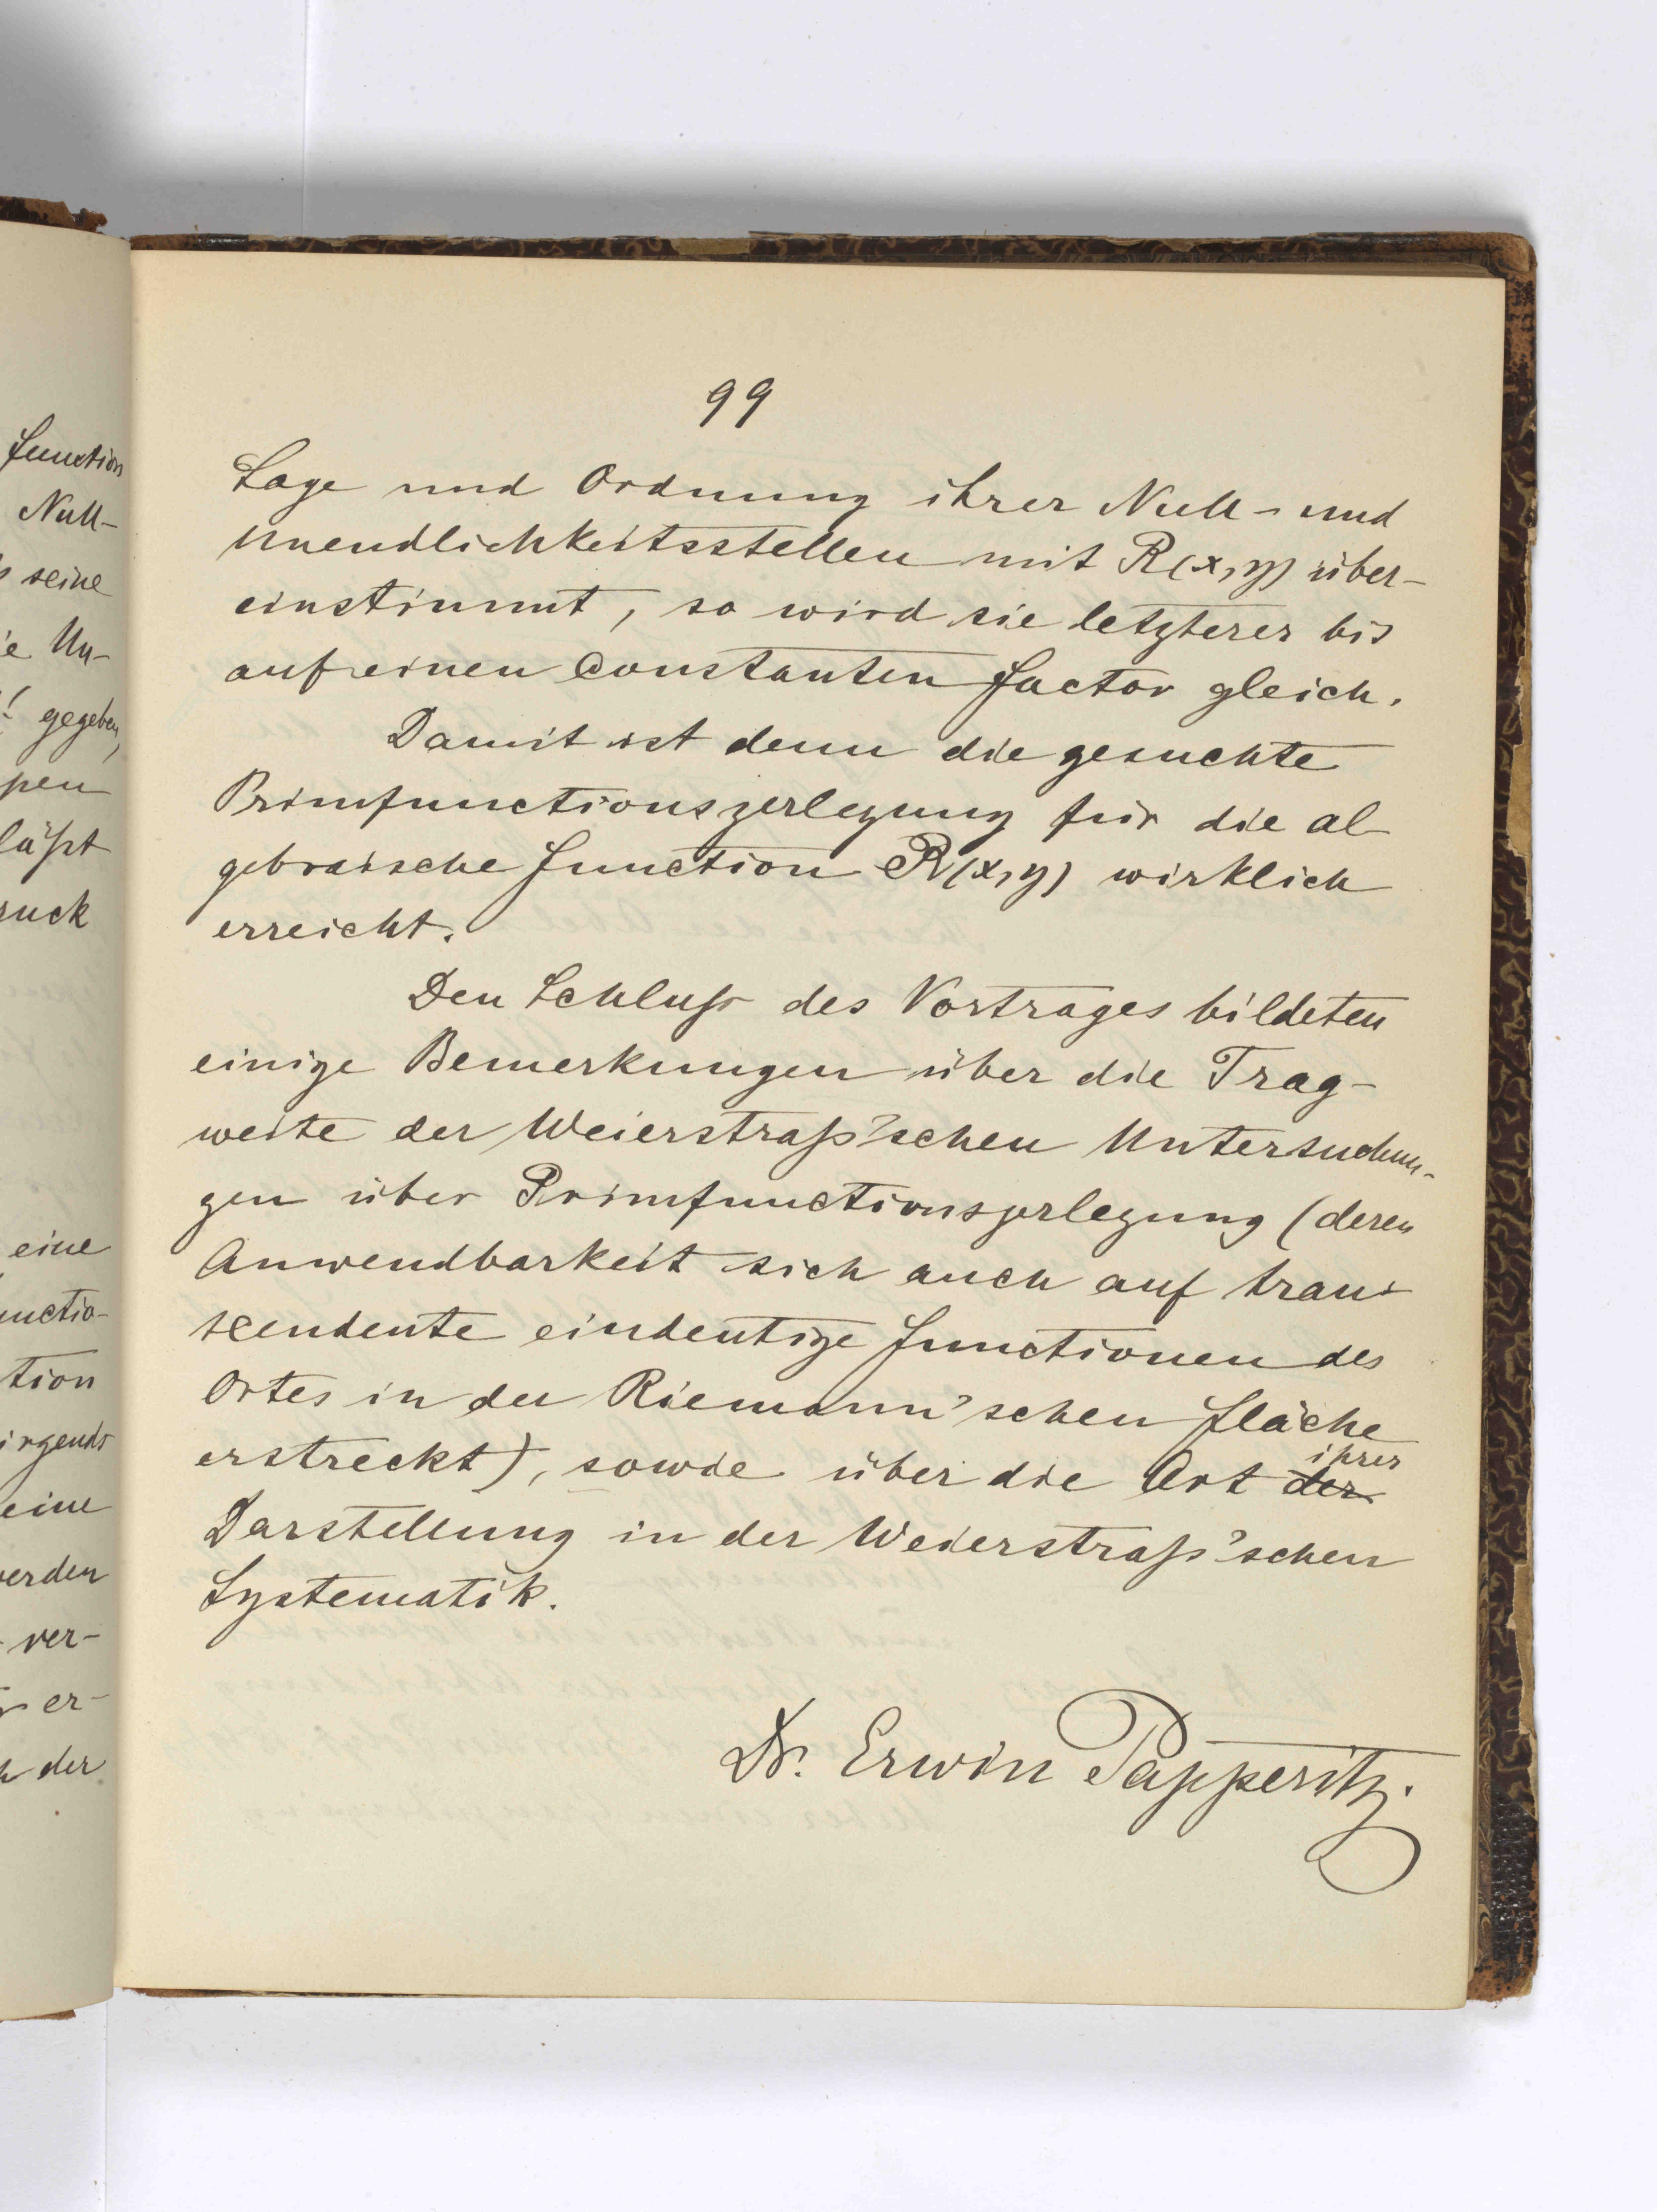 99
Lage und Ordnung ihrer Null- und
Unendlichkeitsstellen mit R(x,y) über-
einstimmt, so wird sie letzterer bis
auf einen constanten Factor gleich.
Damit ist denn die gesuchte
Primfunctionszerlegung für die al-
gebraische Function R(x,y) wirklich
erreicht.
Den Schluß des Vortrages bildeten
einige Bemerkungen über die Trag-
weite der Weierstraß'schen Untersuchun-
gen über Primfunctionszerlegung (deren
Anwendbarkeit sich auch auf trans-
scendente eindeutige Functionen des
Ortes in der Riemann'schen Fläche
erstreckt), sowie über die Art der ihrer
Darstellung in der Weierstraß'schen
Systematik.
Dr. Erwin Papperitz.
function
Null-
seine
Un-
gegeben,
pen
läßt
ruck
eine
nctio-
tion
irgends
eine
werden
ver-
er-
der